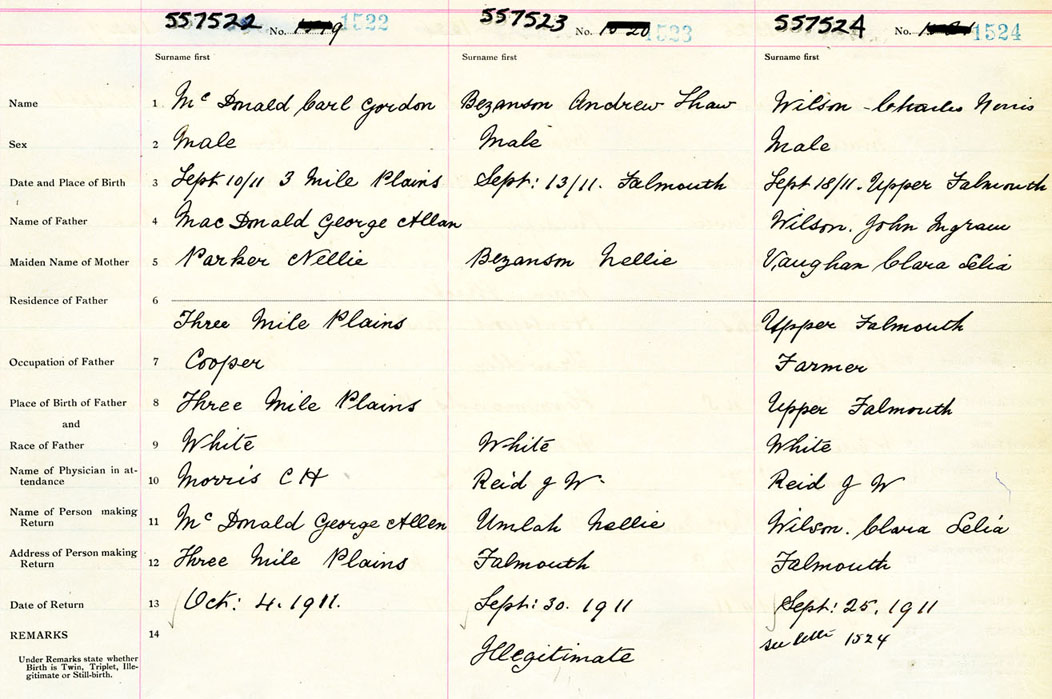 557522 No. 1522 557523 No. 1523 557524 No. 1524
Surname first Surname first Surname first
Name 1 Mc Donald Carl Gordon Bezanson Andrew Shaw Wilson Charles Norris
Sex 2 Male Male Male
Date and Place of Birth 3 Sept 10/11 3 Mile Plains Sept: 13/11. Falmouth Sept 18/11. Upper Falmouth
Name of Father 4 Mac Donald George Allan Wilson. John Ingram
Maiden Name of Mother 5 Parker Nellie Bezanson Nellie Vaughan Clara Lelia
Residence of Father 6
Three Mile Plains Upper Falmouth
Occupation of Father 7 Cooper Farmer
Place of Birth of Father 8 Three Mile Plains Upper Falmouth
and
Race of Father 9 White White White
Name of Physician in at-
tendance 10 Morris C H Reid J W. Reid J W
Name of Person making
Return 11 Mc Donald George Allen Umlah Nellie Wilson. Clara Lelia
Address of Person making
Return 12 Three Mile Plains Falmouth Falmouth
Date of Return 13 Oct: 4. 1911. Sept: 30. 1911 Sept: 25, 1911
REMARKS 14 see 1524
Under Remarks state whether
Birth is Twin, Triplet, Ille-
gitimate or Still-birth. Illegitimate